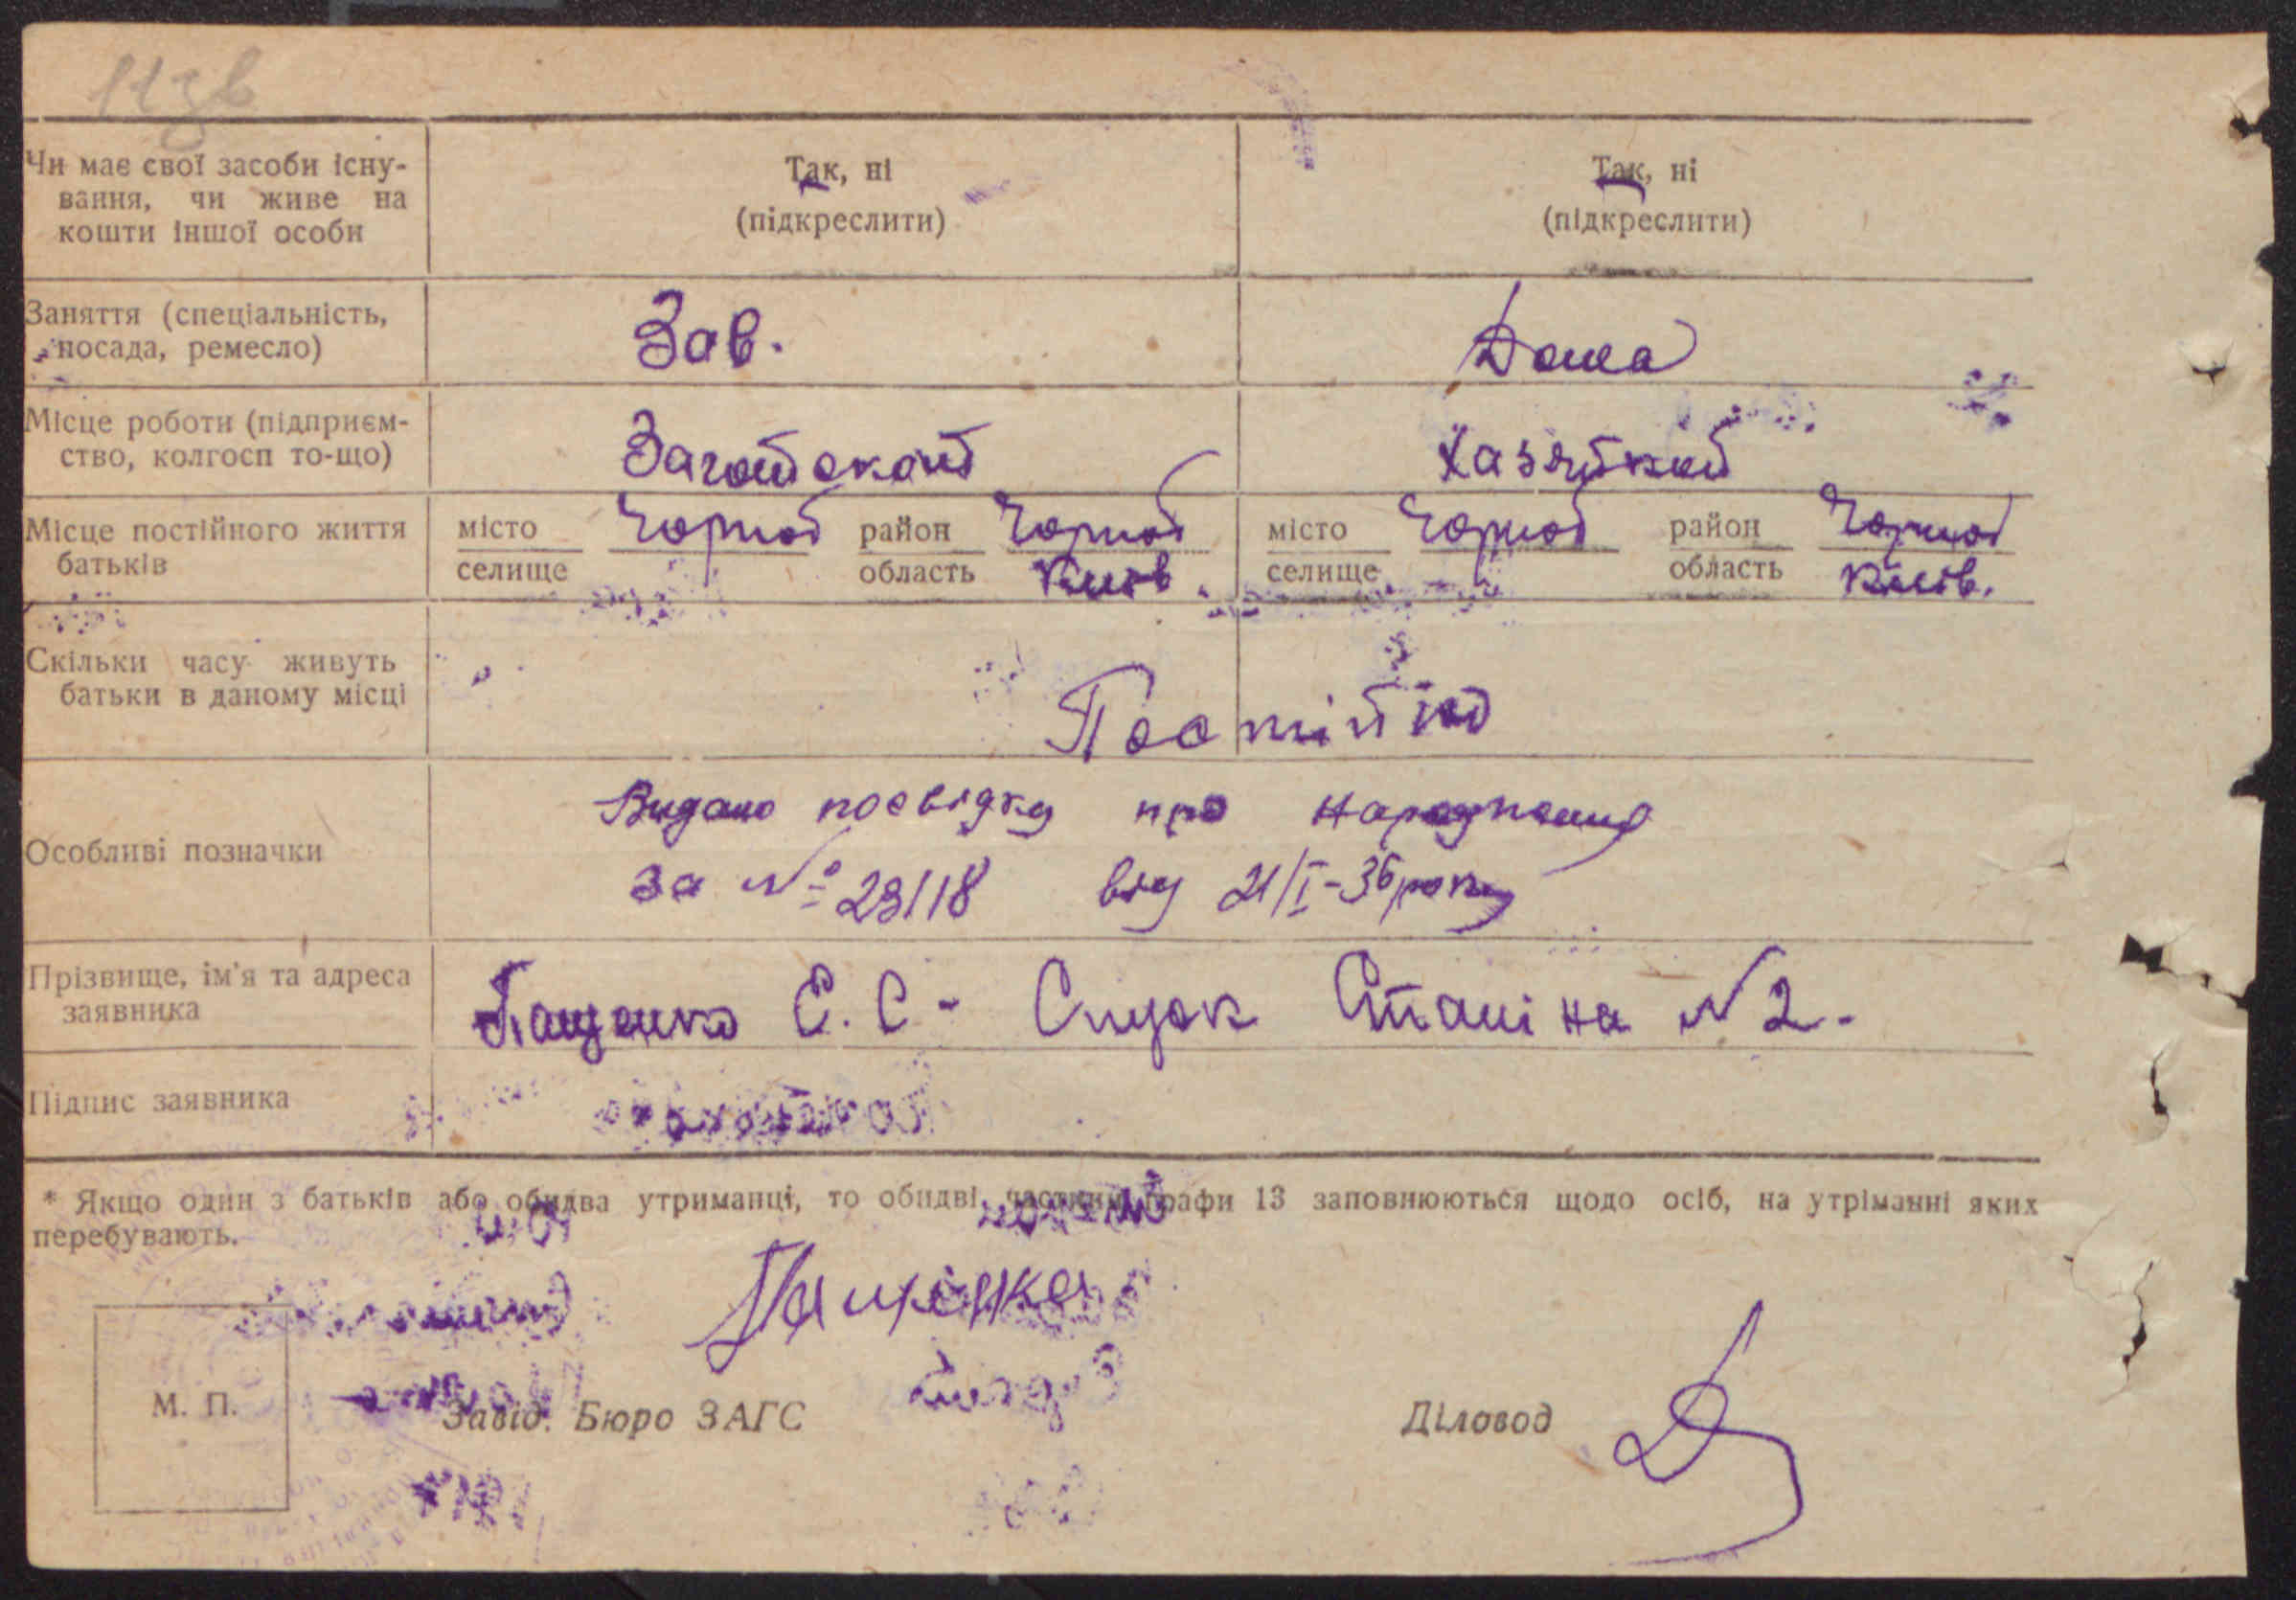 11зв
Чи має свої засоби існу-
вання, чи живе на
кошти іншої особи
Так, ні
(підкреслити)
Так, ні
(підкреслити)
Заняття (спеціальність,
посада, ремесло)
Зав.
Дома
Місце роботи (підприєм-
ство, колгосп то-що)
Заготскот
Хазяйкой
Місце постійного життя
батьків
місто
селище
Чорноб
район
область
Чорноб
Київ.
місто
селище
Чорноб
район
область
Чорноб
Київ.
Скільки часу живуть
батьки в даному місці
Постійно
Особливі позначки
Видано посвідку про народження
за № 23118 від 21/I-36 року
Прізвище, ім'я та адреса
заявника
Пащенко Є. С - Спуск Сталіна № 2.
Підпис заявника
* Якщо один з батьків або обидва утриманці, то обидві частини графи 13 заповнюються щодо осіб, на утріманні яких
перебувають.
М. П.
Завід. Бюро ЗАГС
Діловод